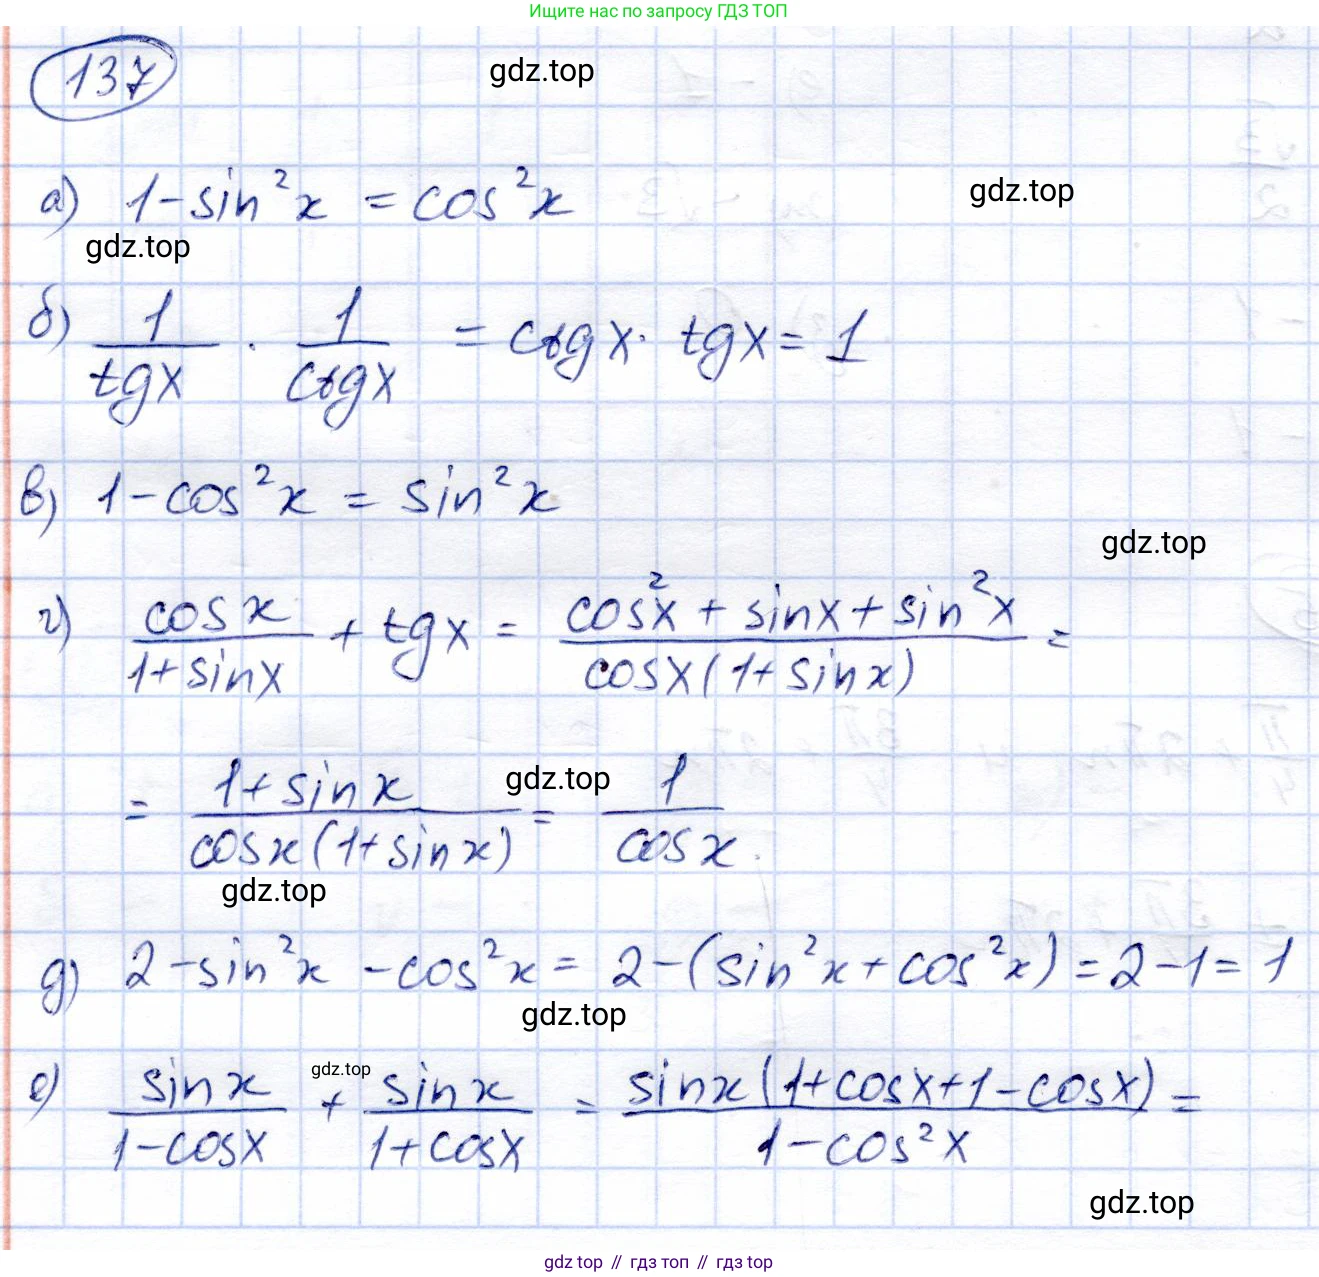 Ищите нас по запросу ГДЗ ТОП
137
gdz.top
а) 1 - sin²x = cos²x
gdz.top
gdz.top
б) 1/tgx · 1/ctgx = ctgx · tgx = 1
в) 1 - cos²x = sin²x
gdz.top
г) cosx/(1+sinx) + tgx = (cos²x + sinx + sin²x)/(cosx(1+sinx)) =
= (1+sinx)/(cosx(1+sinx)) = 1/cosx
gdz.top
gdz.top
д) 2 - sin²x - cos²x = 2 - (sin²x + cos²x) = 2 - 1 = 1
gdz.top
е) sinx/(1-cosx) + sinx/(1+cosx) = sinx(1+cosx+1-cosx)/(1-cos²x) =
gdz.top
gdz.top
gdz top // гдз топ // гдз top